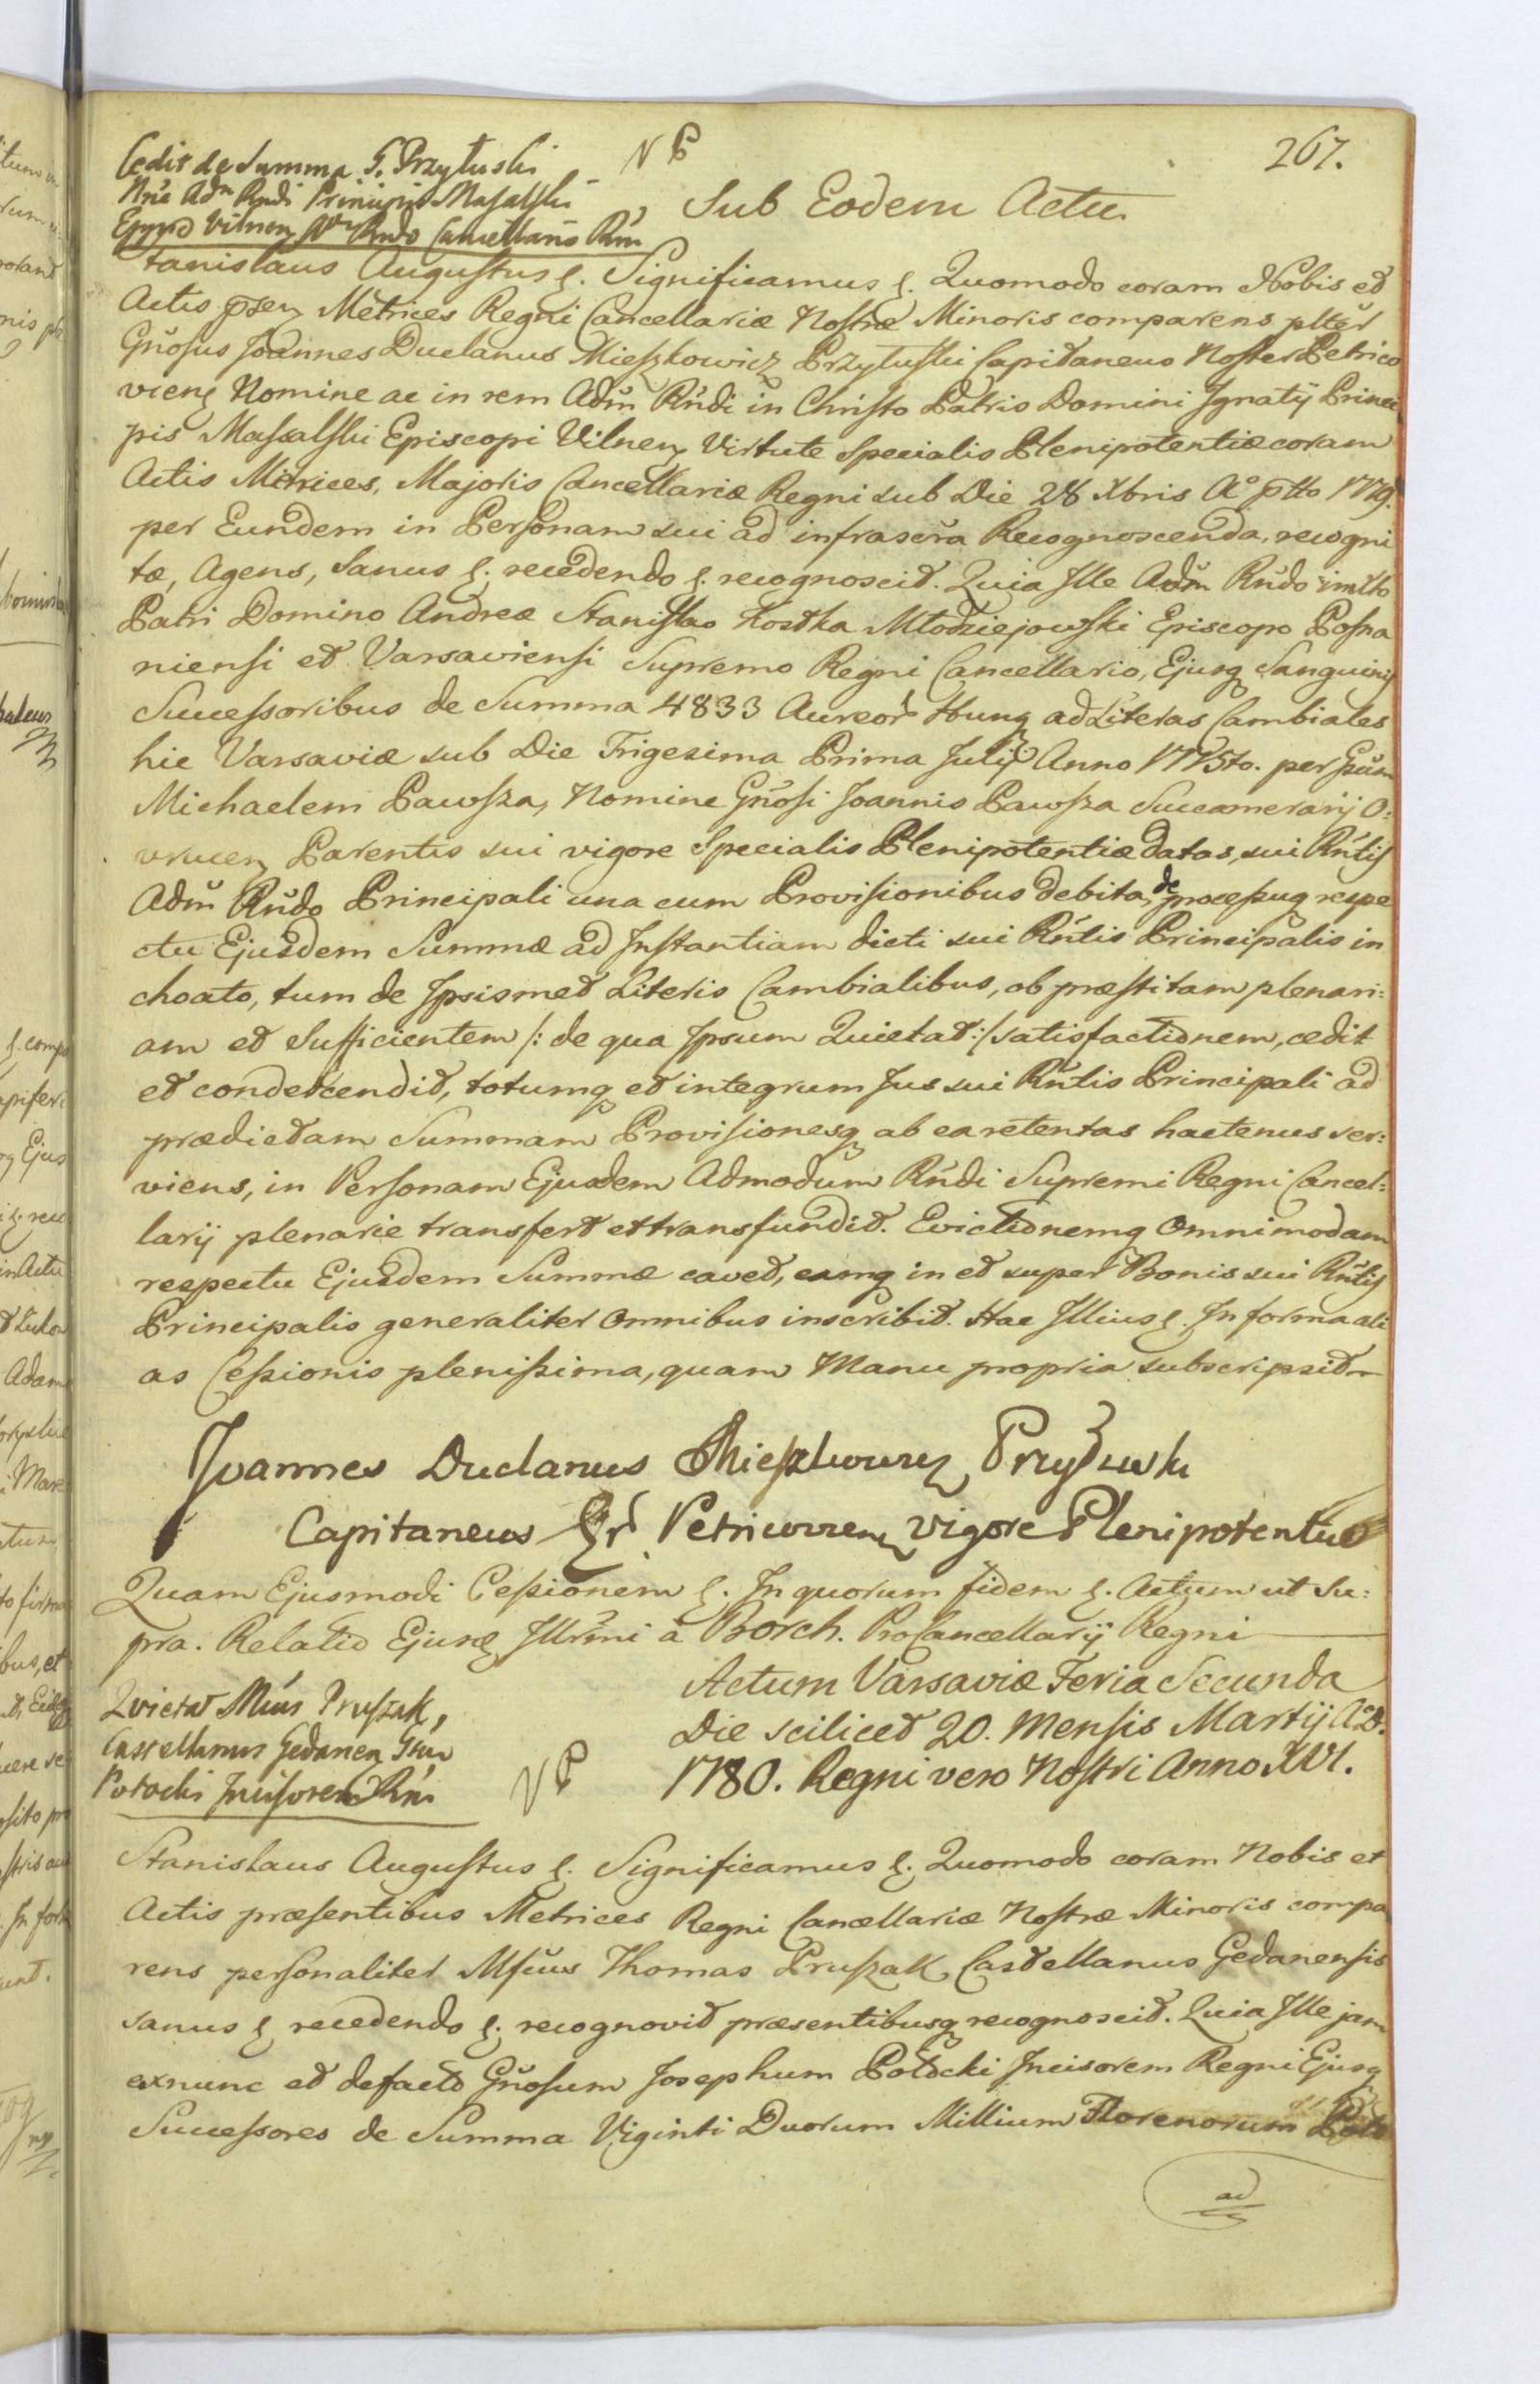 267.
Cedit de Summa G. Przyłuski
Nne Adm Rndi Principis Massalski
Eppd Vilnen Adm Rndo Cancellario Rni
NP
Sub Eodem Actu
tanislaus Augustus &. Significamus &. Quomodo coram Nobis et
Actis psen Metrices Regni Cancellariæ Nostræ Minoris comparens plter
Gnosus Joannes Duclanus Mieszkowicz Przyłuski Capitaneus Noster Petrico
vien Nomine ac in rem Adm Rndi in Christo Patris Domini Ignatij Princi
pis Massalski Episcopi Vilnen Virtute Specialis Plenipotentiæ coram
Actis Metrices, Majoris Cancellariæ Regni sub Die 28 Xbris Aº ptto 1779.
per Eundem in Personam sui ad infrascra Recognoscenda, recogni
tæ, Agens, Sanus &. recedendo &. recognoscit. Quia Ille Adm Rndo in Xto
Patri Domino Andreæ Stanislao Kostka Młodziejowski Episcopo Posna
niensi et Varsaviensi Supremo Regni Cancellario, Ejusq Sanguinis
Successoribus de Summa 4833 Aureor Hung ad Literas Cambiales
hic Varsaviæ sub Die Trigesima Prima Julij Anno 1775to. per Gnum
Michaelem Pawsza, Nomine Gnosi Joannis Pawsza Succamerarij O:
vrucen Parentis sui vigore Specialis Plenipotentiæ datas, sui Rntis
Adm Rndo Principali una cum Provisionibus debita, de processuq respe
ctu Ejusdem Summæ ad Instantiam dicti sui Rntis Principalis in
choato, tum de Ipsismet Literis Cambialibus, ob præstitam plenari:
am et Sufficientem /: de qua Ipsum Quietat:/ satisfactionem, cedit
et condescendit, totumq et integrum Jus sui Rntis Principali ad
prædictam Summam Provisionesq ab ea retentas hactenus ser:
viens, in Personam Ejusdem Admodum Rndi Supremi Regni Cancel:
larij plenarie transfert et transfundit. Evictionemq Omnimodam
respectu Ejusdem Summæ cavet, eamq in et super Bonis sui Rntis
Principalis generaliter Omnibus inscribit. Hac Illius &. In forma ali
as Cessionis plenissima, quam Manu propria subscripsit
Joannes Duclanus Mieszkowicz Przyłuski
Capitaneus Petricovien vigore Plenipotentiæ
Quam Ejusmodi Cessionem &. In quorum fidem &. Actum ut Su:
pra. Relatio Ejusd Illrmi a Borch. ProCancellarij Regni
Actum Varsaviæ Feria Secunda
Die scilicet 20. Mensis Martij A.D.
1780. Regni vero Nostri Anno XVI.
Quietat Mcus Pruszak,
Castellanus Gedanen Gsum
Potocki Incisorem Rni
NP
Stanislaus Augustus &. Significamus &. Quomodo coram Nobis et
Actis præsentibus Metrices Regni Cancellariæ Nostræ Minoris compa
rens personaliter Mfcus Thomas Pruszak Castellanus Gedanensis
sanus & recedendo &. recognovit præsentibusq recognoscit. Quia Ille jam
exnunc et defacto Gnosum Josephum Potocki Incisorem Regni Ejusq
Successores de Summa Viginti Duorum Millium Florenorum Polo
ad